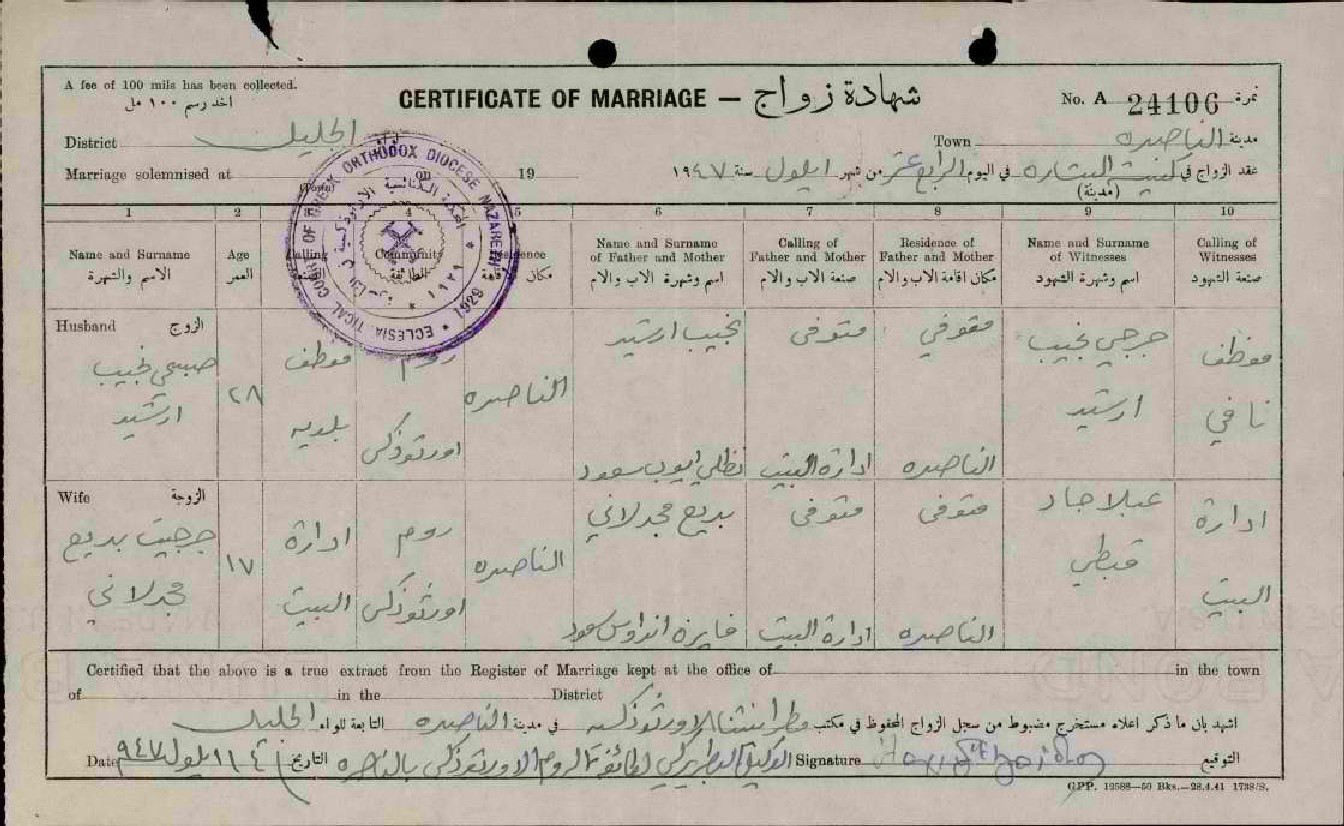 A fee of 100 mils has been collected.
اخذ رسم ١٠٠ مل
CERTIFICATE OF MARRIAGE — شهادة زواج
No. A 24106 نمرة
District الجليل لواء
Town الناصره مدينة
Marriage solemnised at (Town) on 19
عقد الزواج في كنيست البشاره (مدينة) في اليوم الرابع عشر من شهر ايلول سنة ١٩٤٧
ECLESIASTICAL COURT OF GREEK ORTHODOX DIOCESE NAZARETH
1929
١٩٢٩
1 2 3 4 5 6 7 8 9 10
Name and Surname
الاسم والشهرة
Age
العمر
Calling
Community
الطائفة
Residence
مكان
Name and Surname
of Father and Mother
اسم وشهرة الاب والام
Calling of
Father and Mother
صنعة الاب والام
Residence of
Father and Mother
مكان اقامة الاب والام
Name and Surname
of Witnesses
اسم وشهرة الشهود
Calling of
Witnesses
صنعة الشهود
Husband الزوج
صبحي نجيب
ارشيد
٢٨
موظف
بلديه
روم
اورثوذكس
الناصره
نجيب ارشيد
ايوب سعود
متوفى
ادارة البيت
متوفي
الناصره
جرجي نجيب
ارشيد
موظف
Wife الزوجة
جرجيت بديع
مجدلاني
١٧
ادارة
البيت
روم
اورثوذكس
الناصره
بديع مجدلاني
فايزه اندراوس سعود
متوفى
ادارة البيت
متوفى
الناصره
قبطي
ادارة
البيت
Certified that the above is a true extract from the Register of Marriage kept at the office of in the town
of in the District
اشهد بان ما ذكر اعلاه مستخرج مضبوط من سجل الزواج المحفوظ في مكتب مطرانيتنا الاورثوذكسيه في مدينة الناصره التابعة للواء الجليل
Date التاريخ ايلول ٩٤٧
الوكيل البطريركي لطائفة الروم الاورثوذكس بالناصره
Signature التوقيع
GPP. 12588—50 Bks.—28.4.41 1738/S.